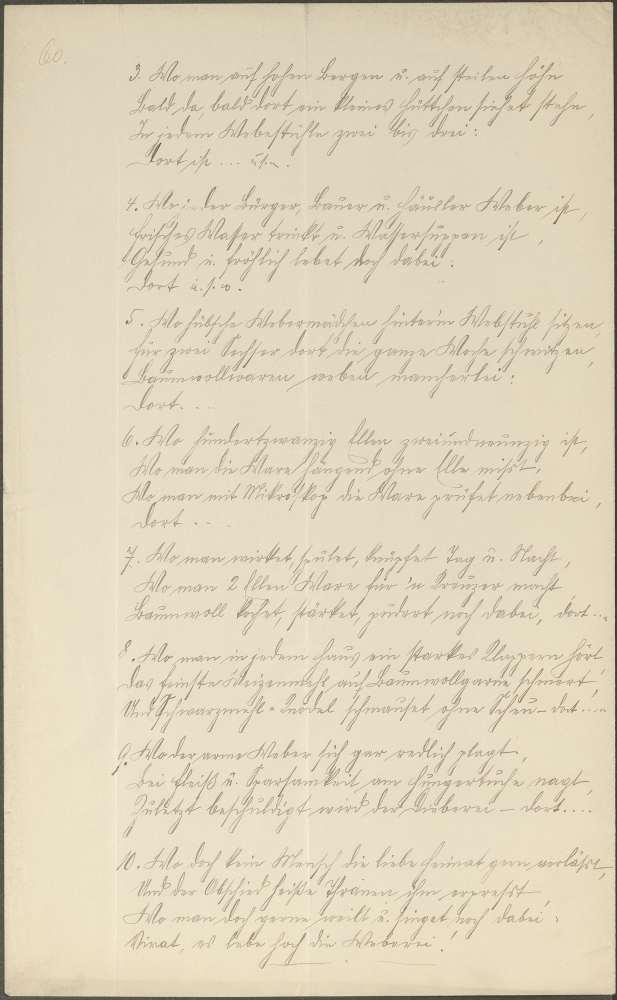 60.
3. Wo man auf hohen Bergen u. auf steilen Höhn
Bald da, bald dort ein kleines Hüttchen siehet stehn,
In jedem Webestühle zwei bis drei:
Dort ist ... u.s.w.
4. Wo jeder Bürger, Bauer u. Häusler Weber ist,
Frisches Wasser trinkt u. Wassersuppen ißt,
Gesund u. fröhlich lebet noch dabei:
Dort u.s.w.
5. Wo hübsche Webermädchen hinter'm Webstuhl sitzen,
Für zwei Sechser dort die ganze Woche schwitzen,
Baumwollwaren weben mancherlei:
Dort...
6. Wo hundertzwanzig Ellen zweiundneunzig ist,
Wo man die Ware hängend ohne Elle mißt,
Wo man mit Mikroskop die Ware prüfet nebenbei,
Dort ...
7. Wo man wirket, spulet, knüpfet Tag u. Nacht,
Wo man 2 Ellen Ware für 'n Kreuzer macht
Baumwoll kochet, stärket, pudert noch dabei, dort...
8. Wo man in jedem Haus ein starkes Klappern hört
Das feinste Weizenmehl auf Baumwollgarne schmiert,
Und Schwarzmehl-Knödel schmauset ohne Scheu - dort....
9. Wo der arme Weber sich gar redlich plagt,
Bei Fleiß u. Sparsamkeit am Hungertuche nagt,
Zuletzt beschuldigt wird der Dieberei - dort....
10. Wo doch kein Mensch die liebe Heimat gern verläßt,
Und der Abschied heiße Thränen ihm erpreßt
Wo man doch gerne weilt u. singet noch dabei:
Vivat, es lebe hoch die Weberei!